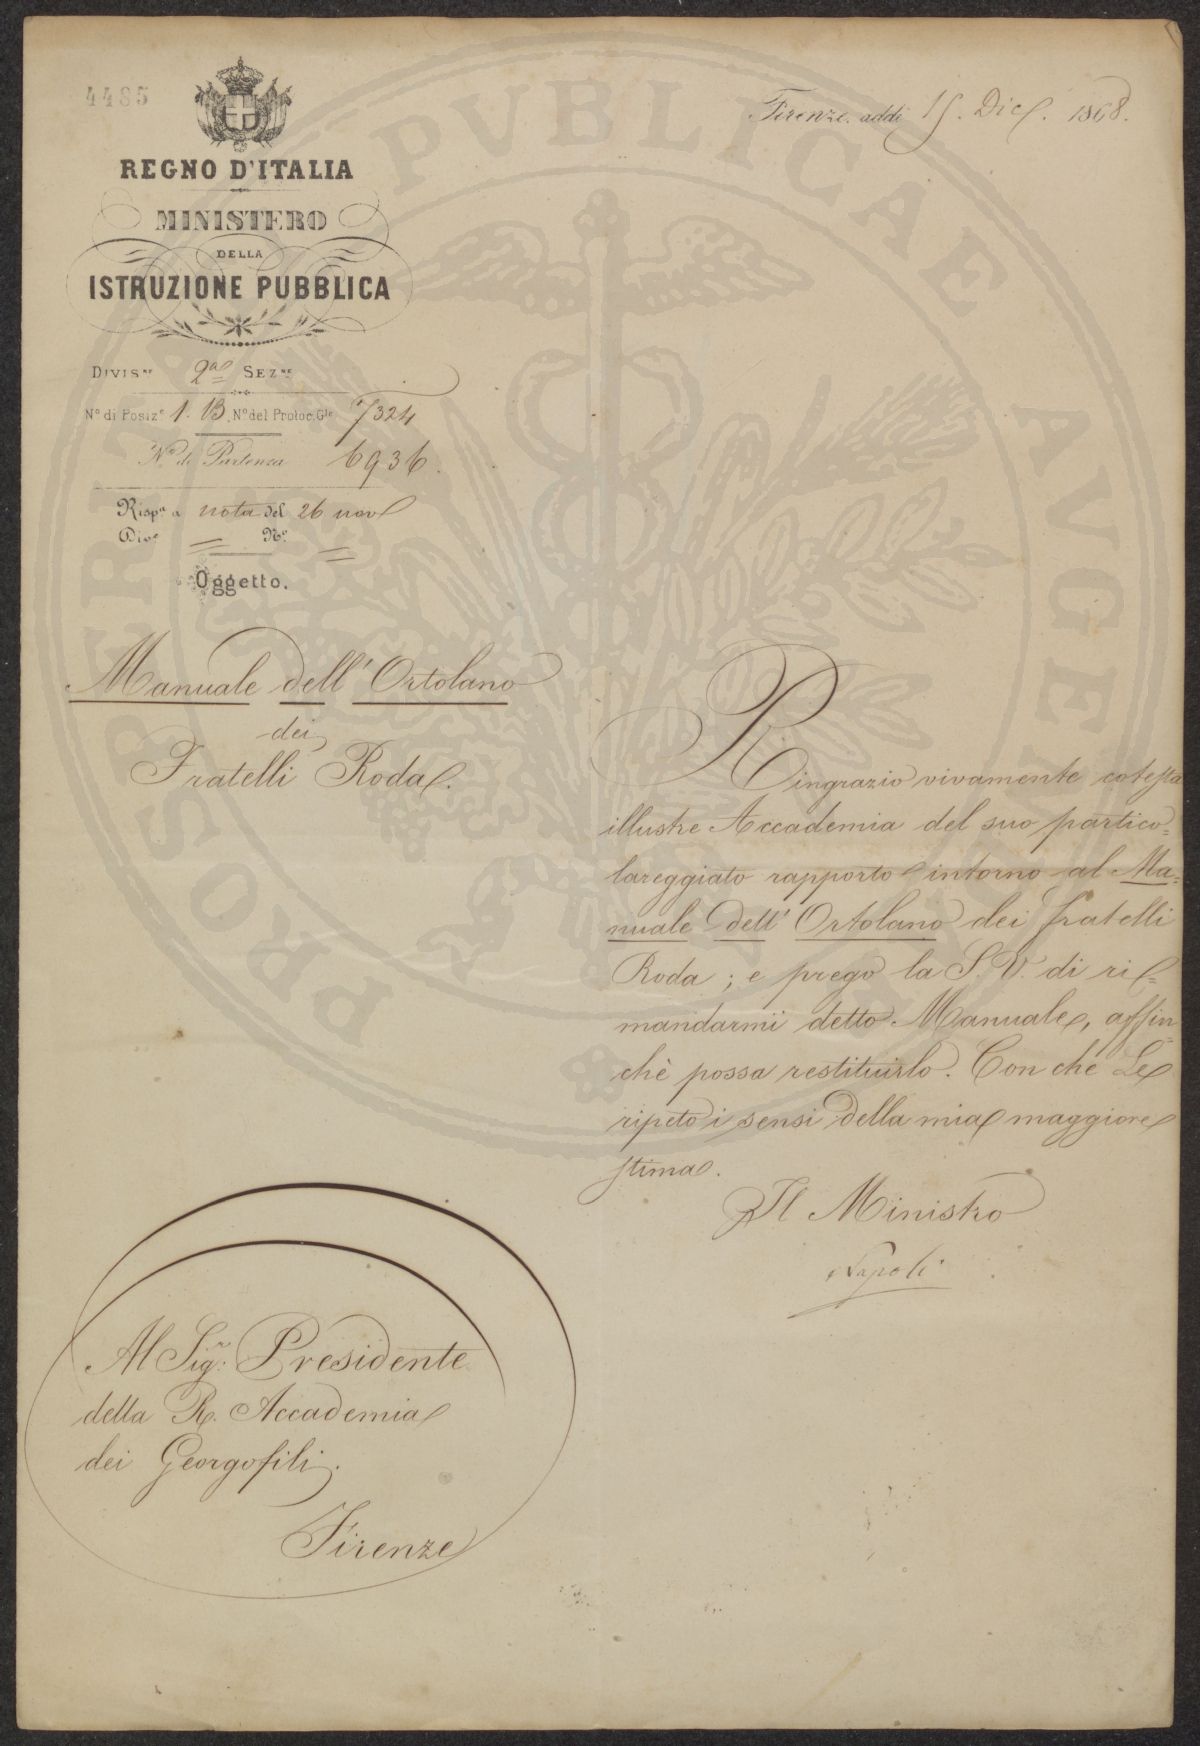 4485
REGNO D'ITALIA
MINISTERO
DELLA
ISTRUZIONE PUBBLICA
Divis.ne 2a Sez.ne
N.º di Posiz.e 1. B. N.º del Protoc. G.le 7324
N.º di Partenza 6936.
Risp.a a nota del 26 nov
Div.e = N.º =
Oggetto.
Manuale dell'Ortolano
dei
Fratelli Roda.
Firenze. addi 15. Dic. 1868.
Ringrazio vivamente cotesta
illustre Accademia del suo partico=
lareggiato rapporto intorno al Ma=
nuale dell'Ortolano dei fratelli
Roda; e prego la S.V. di ri=
mandarmii detto Manuale, affin=
chè possa restituirlo. Con che Le
ripeto i sensi della mia maggiore
stima.
Il Ministro
Napoli
Al Sig.r: Presidente
della R. Accademia
dei Georgofili.
Firenze
PROSPERITATI PVBLICAE AVGENDAE